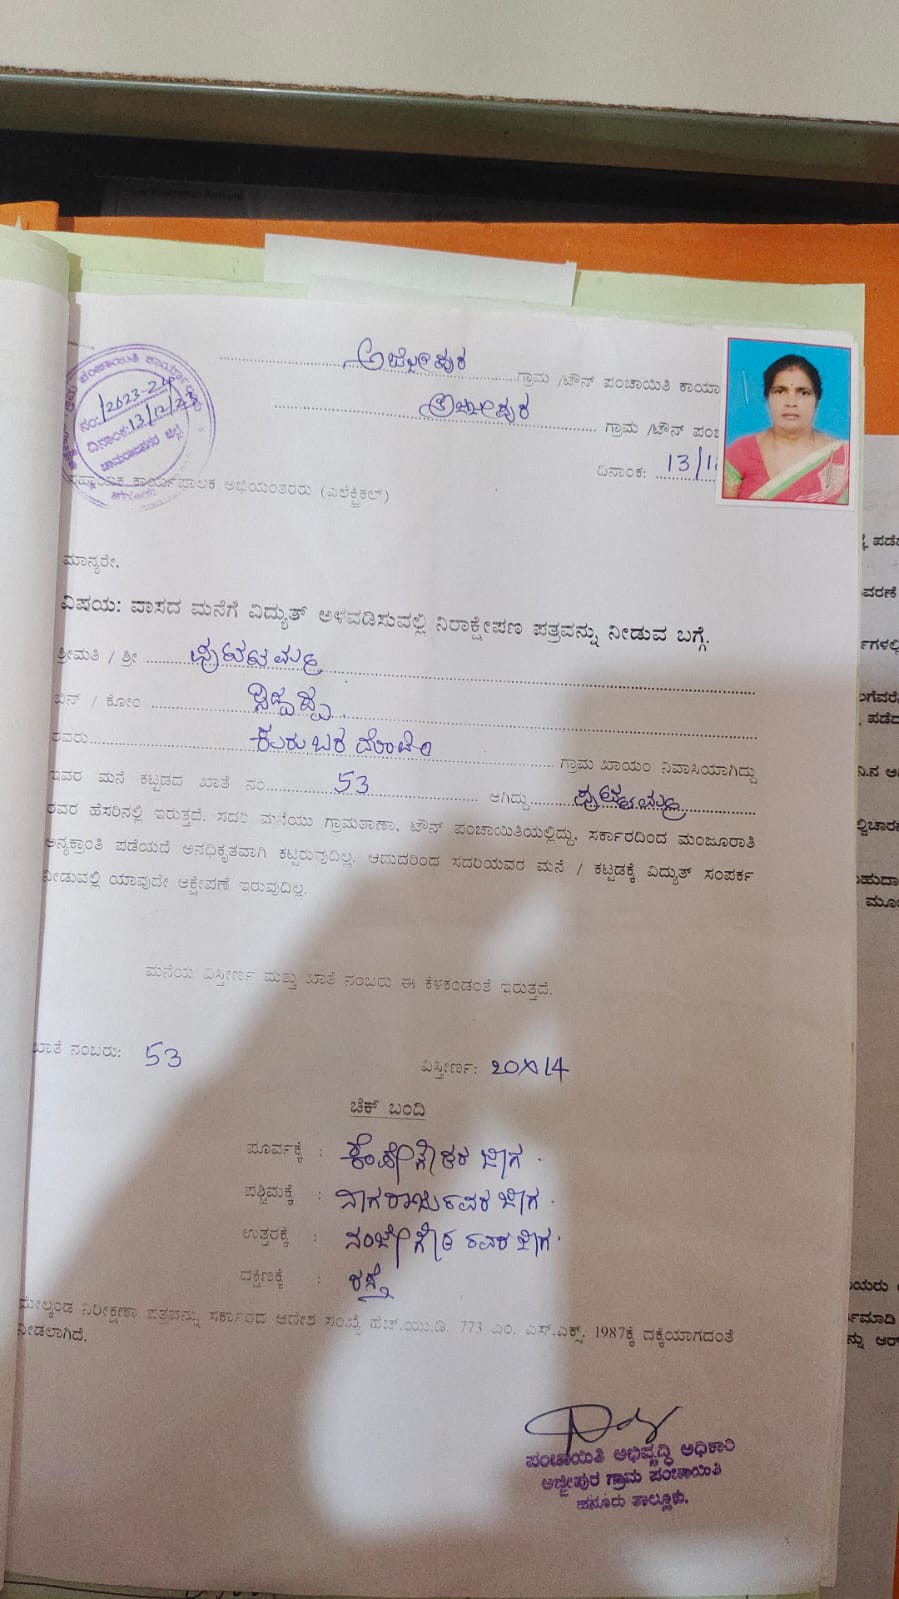 ಅಜ್ಜೀಪುರ
ಗ್ರಾಮ /ಟೌನ್ ಪಂಚಾಯಿತಿ ಕಾರ್ಯಾ
ಅಜ್ಜೀಪುರ
ಗ್ರಾಮ /ಟೌನ್ ಪಂಚ
ದಿನಾಂಕ: 13/1
ಪಂಚಾಯಿತಿ ಕಾರ್ಯಾ
ನಂ:/2023-24
ದಿನಾಂಕ:13/12/23
ಚಾಮರಾಜನಗರ ಜಿಲ್ಲೆ
ಸಹಾಯಕ ಕಾರ್ಯಪಾಲಕ ಅಭಿಯಂತರರು (ಎಲೆಕ್ಟ್ರಿಕಲ್)
ಮಾನ್ಯರೇ,
ವಿಷಯ: ವಾಸದ ಮನೆಗೆ ವಿದ್ಯುತ್ ಅಳವಡಿಸುವಲ್ಲಿ ನಿರಾಕ್ಷೇಪಣ ಪತ್ರವನ್ನು ನೀಡುವ ಬಗ್ಗೆ.
ಶ್ರೀಮತಿ / ಶ್ರೀ
ಬಿನ್ / ಕೋಂ
ರವರು ಗ್ರಾಮ ಖಾಯಂ ನಿವಾಸಿಯಾಗಿದ್ದು
ಇವರ ಮನೆ ಕಟ್ಟಡದ ಖಾತೆ ನಂ. 53 ಆಗಿದ್ದು
ರವರ ಹೆಸರಿನಲ್ಲಿ ಇರುತ್ತದೆ. ಸದರಿ ಮನೆಯು ಗ್ರಾಮಠಾಣಾ, ಟೌನ್ ಪಂಚಾಯಿತಿಯಲ್ಲಿದ್ದು, ಸರ್ಕಾರದಿಂದ ಮಂಜೂರಾತಿ
ಅನ್ಯಕ್ರಾಂತಿ ಪಡೆಯದೆ ಅನಧಿಕೃತವಾಗಿ ಕಟ್ಟಿರುವುದಿಲ್ಲ. ಆದುದರಿಂದ ಸದರಿಯವರ ಮನೆ / ಕಟ್ಟಡಕ್ಕೆ ವಿದ್ಯುತ್ ಸಂಪರ್ಕ
ನೀಡುವಲ್ಲಿ ಯಾವುದೇ ಆಕ್ಷೇಪಣೆ ಇರುವುದಿಲ್ಲ.
ಮನೆಯ ವಿಸ್ತೀರ್ಣ ಮತ್ತು ಖಾತೆ ನಂಬರು ಈ ಕೆಳಕಂಡಂತೆ ಇರುತ್ತದೆ.
ಖಾತೆ ನಂಬರು: 53 ವಿಸ್ತೀರ್ಣ: 20X14
ಚೆಕ್ ಬಂದಿ
ಪೂರ್ವಕ್ಕೆ : ಕೆಂಪೇಗೌಡರ ಜಾಗ.
ಪಶ್ಚಿಮಕ್ಕೆ : ನಾಗರಾಜುರವರ ಜಾಗ.
ಉತ್ತರಕ್ಕೆ : ನಂಜೇಗೌಡರವರ ಜಾಗ.
ದಕ್ಷಿಣಕ್ಕೆ : ರಸ್ತೆ
ಮೇಲ್ಕಂಡ ನಿರೀಕ್ಷಣಾ ಪತ್ರವನ್ನು ಸರ್ಕಾರದ ಆದೇಶ ಸಂಖ್ಯೆ ಹೆಚ್.ಯು.ಡಿ. 773 ಎಂ. ಎಸ್.ಎಕ್ಸ್. 1987ಕ್ಕೆ ದಕ್ಕೆಯಾಗದಂತೆ
ನೀಡಲಾಗಿದೆ.
ಪಂಚಾಯಿತಿ ಅಭಿವೃದ್ಧಿ ಅಧಿಕಾರಿ
ಅಜ್ಜೀಪುರ ಗ್ರಾಮ ಪಂಚಾಯಿತಿ
ಹನೂರು ತಾಲ್ಲೂಕು.